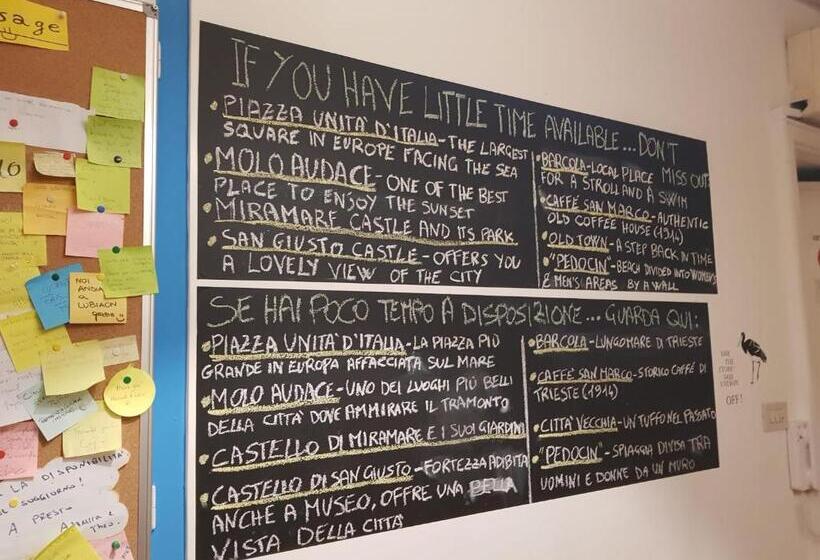 sage
IF YOU HAVE LITTLE TIME AVAILABLE...DON'T
MISS OUT:
• PIAZZA UNITA' D'ITALIA - THE LARGEST
SQUARE IN EUROPE FACING THE SEA
• MOLO AUDACE - ONE OF THE BEST
PLACE TO ENJOY THE SUNSET
• MIRAMARE CASTLE AND ITS PARK
• SAN GIUSTO CASTLE - OFFERS YOU
A LOVELY VIEW OF THE CITY
• BARCOLA - LOCAL PLACE
FOR A STROLL AND A SWIM
• CAFFÉ SAN MARCO - AUTHENTIC
OLD COFFEE HOUSE (1914)
• OLD TOWN - A STEP BACK IN TIME
• "PEDOCIN" - BEACH DIVIDED INTO WOMEN'S
& MEN'S AREAS BY A WALL
SE HAI POCO TEMPO A DISPOSIZIONE... GUARDA QUI:
• PIAZZA UNITA' D'ITALIA - LA PIAZZA PIÙ
GRANDE IN EUROPA AFFACCIATA SUL MARE
• MOLO AUDACE - UNO DEI LUOGHI PIÙ BELLI
DELLA CITTA' DOVE AMMIRARE IL TRAMONTO
• CASTELLO DI MIRAMARE E I SUOI GIARDINI
• CASTELLO DI SAN GIUSTO - FORTEZZA ADIBITA
ANCHE A MUSEO, OFFRE UNA BELLA
VISTA DELLA CITTA'
• BARCOLA - LUNGOMARE DI TRIESTE
• CAFFÉ SAN MARCO - STORICO CAFFÉ DI
TRIESTE (1914)
• CITTA' VECCHIA - UN TUFFO NEL PASSATO
• "PEDOCIN" - SPIAGGIA DIVISA TRA
UOMINI E DONNE DA UN MURO
NOI
ANDIA
A
LUBIAON
LA DISPONIBILITÀ
SOGGIORNO!
A PRESTO
OFF!